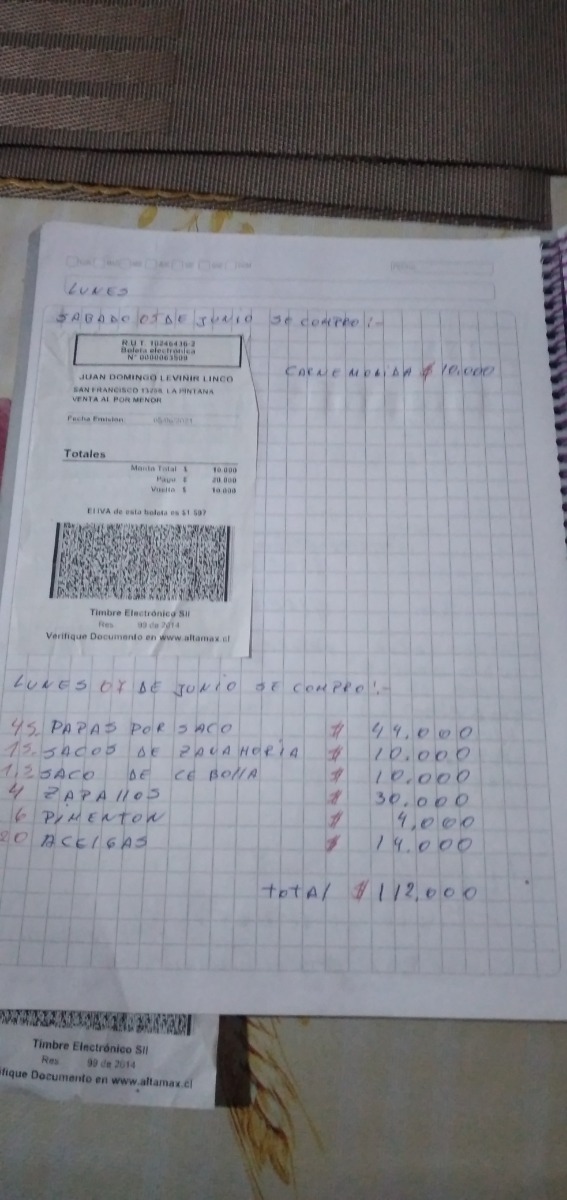 LUNES
SABADO 05 DE JUNIO SE COMPRO:-
R.U.T. 10246436-2
Boleta electrónica
N° 0000063509
JUAN DOMINGO LEVINIR LINCO
SAN FRANCISCO 13298, LA PINTANA
VENTA AL POR MENOR
Fecha Emisión: 05/06/2021
CARNE MOLIDA $ 10.000
Totales
Monto Total $ 10.000
Pago $ 20.000
Vuelto $ 10.000
El IVA de esta boleta es $1.597
Timbre Electrónico SII
Res. 99 de 2014
Verifique Documento en www.altamax.cl
LUNES 07 DE JUNIO SE COMPRO:-
45 PAPAS POR SACO $ 44.000
SACOS DE ZANAHORIA $ 10.000
SACO DE CEBOLLA $ 10.000
4 ZAPALLOS $ 30.000
6 PIMENTON $ 4.000
20 ACELGAS $ 14.000
TOTAL $ 112.000
Timbre Electrónico SII
Res. 99 de 2014
ifique Documento en www.altamax.cl